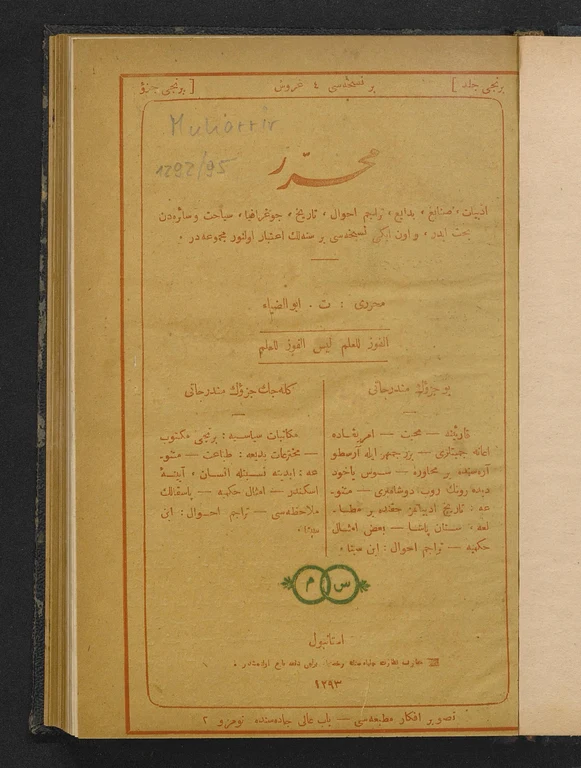 [ برنجی جلد
بر نسخه‌سی ٤ غروش
برنجی جزؤ ]
Muharrir
1292/95
محرر
ادبیات، صنایع، بدایع، تراجم احوال، تاریخ، جوغرافیا، سیاحت و سائره‌دن
بحث ایدر، و اون ایکی نسخه‌سی بر سنه‌لك اعتبار اولنور مجموعه‌در.
محرری : ت. ابوالضیاء
الفوز للعلم لیس الفوز للعلم
بو جزؤك مندرجاتی
قارئینه — محبت — امریقاده
اعانه جمعیتلری — بزرجمهر ایله آرسطو
آره‌سنده بر محاوره — سوس یاخود
عه : تاریخ ادبیاتمز حقنده بر مطا
لعه . سنان پاشا — بعض امثال
حکمیه — تراجم احوال : ابن سینا .
کله‌جك جزؤك مندرجاتی
مکاتبات سیاسیه : برنجی مکتوب
— مخترعات بدیعه : طباعت — متنو
عه : ابدیته نسبتله انسان . آیینۀ
اسکندر — امثال حکمیه — پاسقالك
ملاحظه‌سی — تراجم احوال : ابن
سینا .
س م
استانبول
١٢٩٣
تصویر افکار مطبعه‌سی — باب عالی جاده‌سنده نومرو ٢